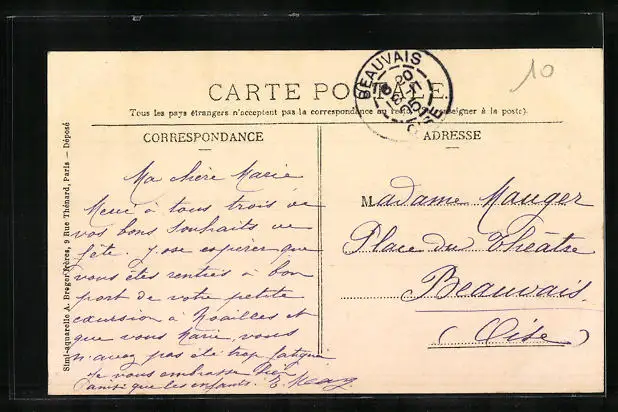 10
CARTE POSTALE
BEAUVAIS
OISE
Tous les pays étrangers n'acceptent pas la correspondance au recto. (Se renseigner à la poste).
CORRESPONDANCE
Ma chère Marie
Merci à tous trois de
vos bons souhaits de
fête. J'ose espérer que
vous êtes rentrés à bon
port de votre petite
excursion à Noailles et
que vous Marie, vous
n'avez pas été trop fatiguée
Je vous embrasse bien
ainsi que les enfants.
ADRESSE
Madame Mauger
Place du Théâtre
Beauvais.
(Oise)
Simi-aquarelle A. Breger Frères, 9 Rue Thénard, Paris — Déposé